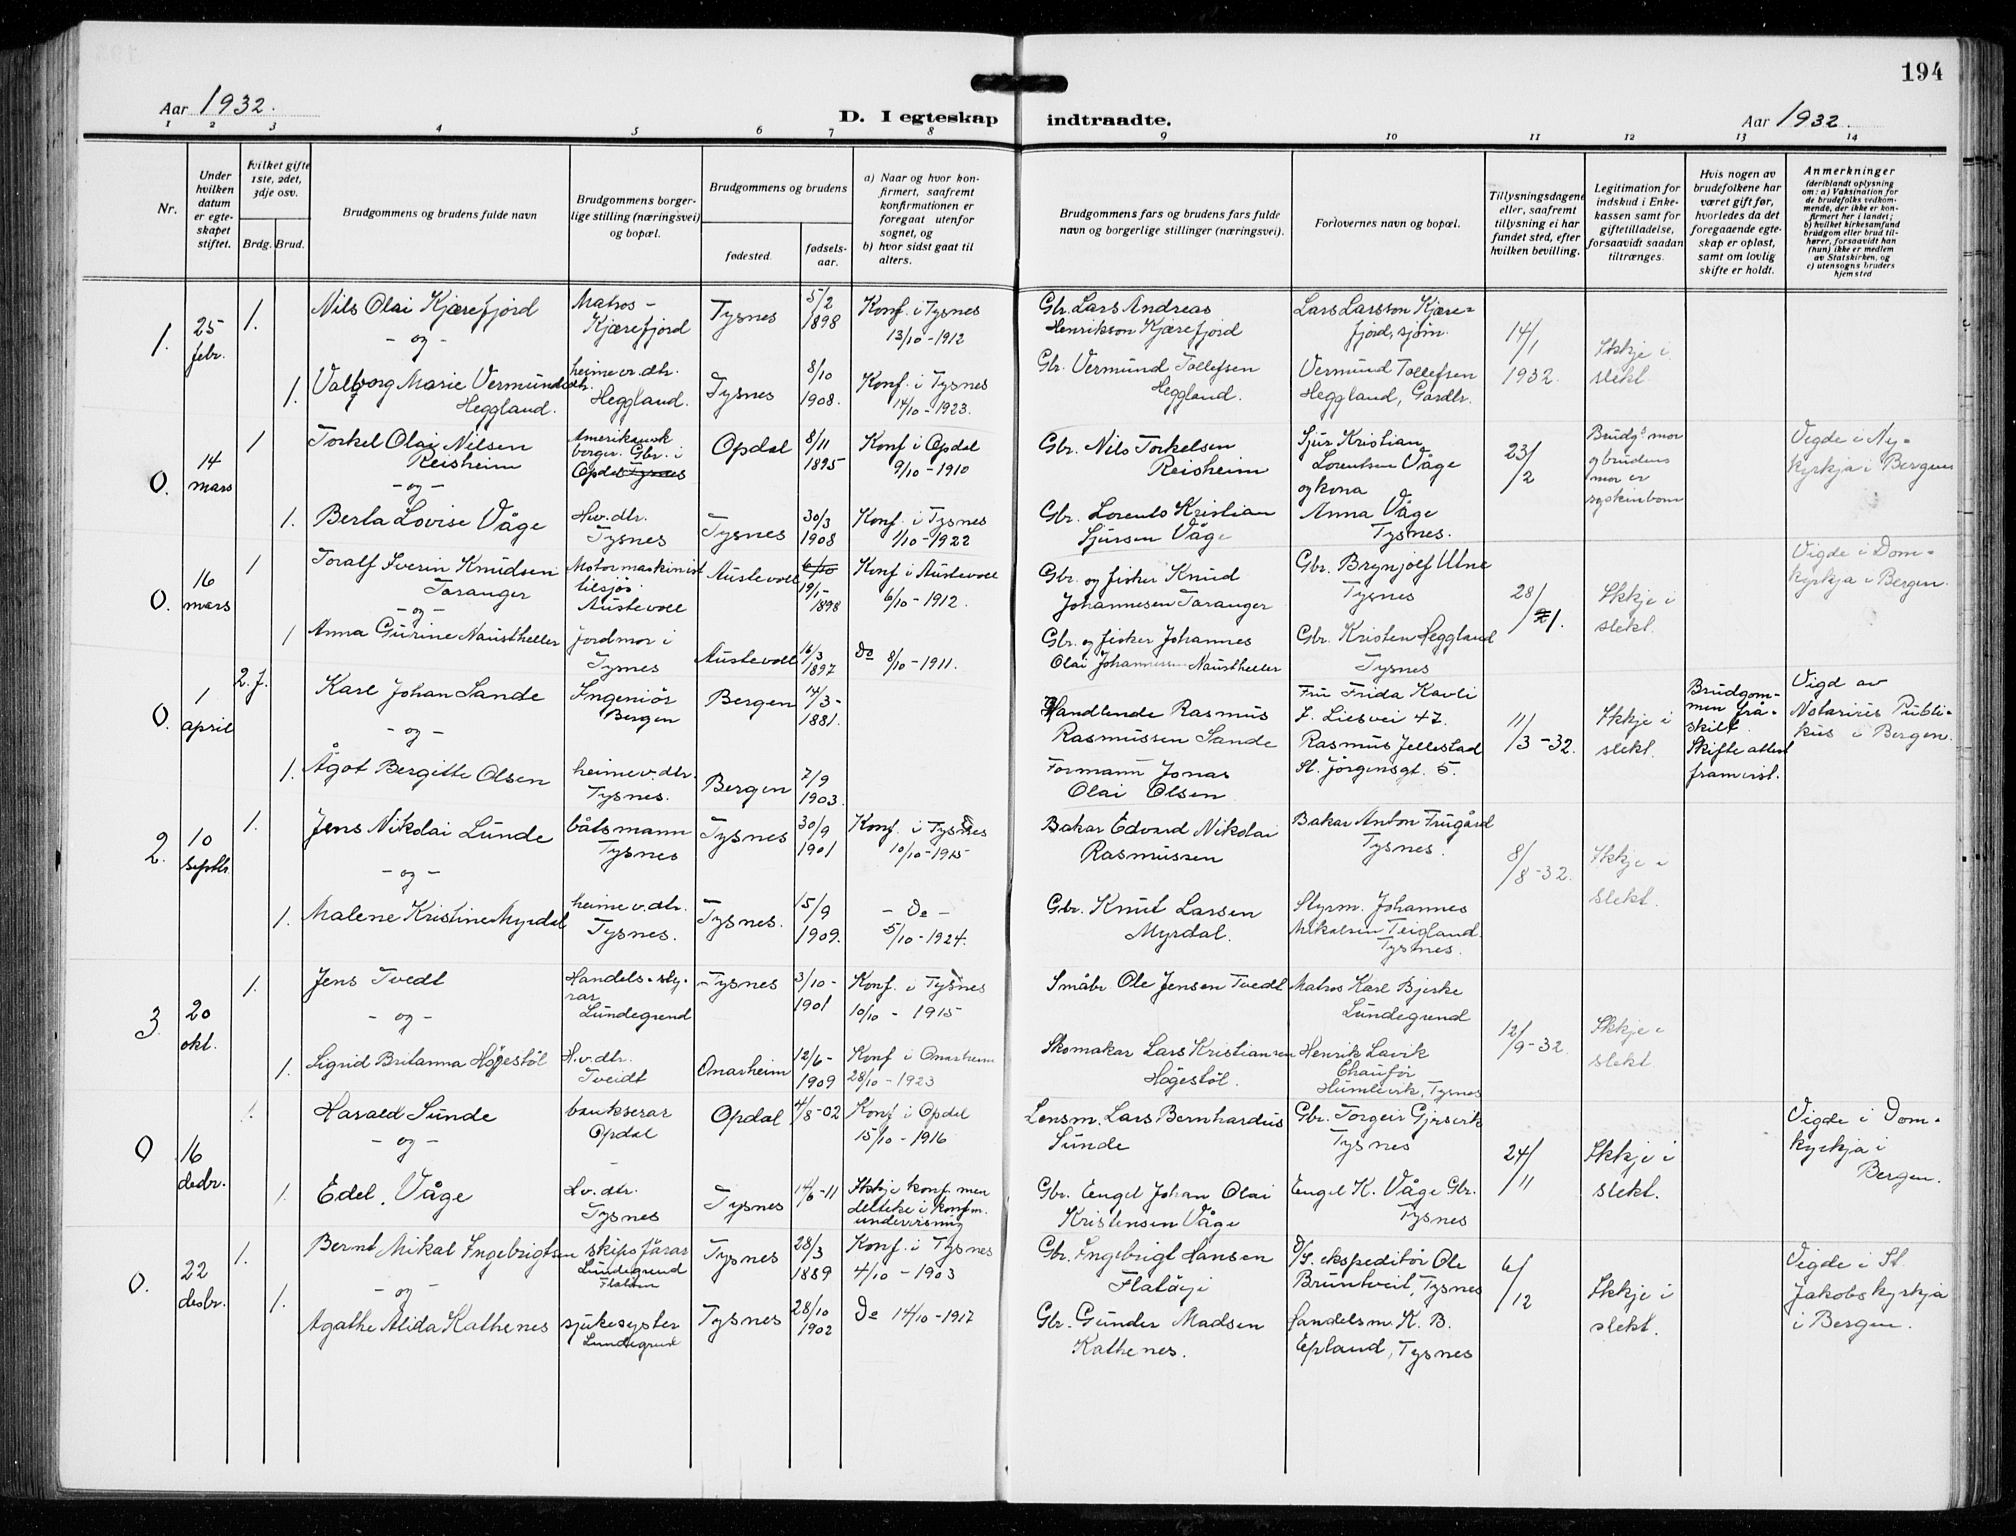 194
Aar 1932.
D. I egteskap indtraadte.
Aar 1932.
1 2 3 4 5 6 7 8 9 10 11 12 13 14
Nr.
Under hvilken datum er egteskapet stiftet.
Hvilket gifte 1ste, 2det, 3dje osv.
Brdg. Brud.
Brudgommens og brudens fulde navn
Brudgommens borgerlige stilling (næringsvei) og bopæl.
Brudgommens og brudens
fødested.
fødselsaar.
a) Naar og hvor konfirmert, saafremt konfirmationen er foregaat utenfor sognet, og
b) hvor sidst gaat til alters.
Brudgommens fars og brudens fars fulde navn og borgerlige stillinger (næringsvei).
Forlovernes navn og bopæl.
Tillysningsdagene eller, saafremt tillysning ei har fundet sted, efter hvilken bevilling.
Legitimation for indskud i Enkekassen samt for giftetilladelse, forsaavidt saadan tiltrænges.
Hvis nogen av brudefolkene har været gift før, hvorledes da det foregaaende egteskap er opløst, samt om lovlig skifte er holdt.
Anmerkninger (deriblandt oplysning om: a) Vaksination for de brudefolks vedkommende, der ikke er konfirmert her i landet; b) hvilket kirkesamfund brudgom eller brud tilhører, forsaavidt han (hun) ikke er medlem av Statskirken, og c) utensogns bruders hjemsted
1. 25 febr. 1. Nils Olai Kjærefjord Matros - Kjærefjord Tysnes 5/2 1898 Konf. i Tysnes 13/10 - 1912 Gbr. Lars Andreas Henrikson Kjærefjord Lars Larsson Kjærefjord, sjøm. 14/1 1932. Ikkje i slekt.
- og -
1. Valborg Marie Vermundsdtr. Heggland. heimev. dtr. Heggland. Tysnes 8/10 1908. Konf. i Tysnes 14/10 - 1923. Gbr. Vermund Tollefsen Heggland. Vermund Tollefsen Heggland, Gardbr.
0. 14 mars 1 Torkel Olai Nilsen Reisheim Amerikansk borger. Gbr. i Opdal Tysnes Opdal 8/11 1895 Konf i Opdal 9/10 - 1910 Gbr. Nils Torkelsen Reisheim Sjur Kristian Lorentsen Våge og kona 23/2 Brudgs mor og brudens mor er syskinborn Vigde i Nykyrkja i Bergen
- og -
1. Berta Lovise Våge Hv. dtr. Tysnes Tysnes 30/3 1908 Konf. i Tysnes 1/10 - 1922 Gbr. Lorents Kristian Sjursen Våge Anna Våge Tysnes.
0. 16 mars 1 Toralf Iverin Knudsen Taranger Motormaskinist tilsjøs Austevoll Austevoll 6/10 19/1- 1898 Konf i Austevoll 6/10 - 1912. Gbr. og fisker Knud Johannesen Taranger Gbr. Brynjolf Ulne Tysnes 28/1. Ikkje i slekt. Vigde i Domkyrkja i Bergen.
- og -
1 Anna Gurine Naustheller Jordmor i Tysnes Austevoll 16/3 1897 Do 8/10 - 1911. Gbr. og fisker Johannes Olai Johannessen Naustheller Gbr. Kristen Heggland Tysnes
0. 1 april 2. f. Karl Johan Sande Ingeniør Bergen Bergen 14/3- 1881. Handlende Rasmus Rasmussen Sande Fru Frida Kavli F. Liesvei 47. 11/3 - 32. Ikkje i slekt. Brudgommen fråskilt. Skifte attest framvist. Vigd av Notarius Publikus i Bergen.
- og -
1. Ågot Bergitte Olsen heimev. dtr. Tysnes. Bergen 7/9 1903. Formann Jonas Olai Olsen Rasmus Jellestad St. Jörgensgt. 5.
2. 10 septbr. 1. Jens Nikolai Lunde båtsmann Tysnes Tysnes 30/9 1901 Konf. i Tysnes 10/10 - 1915 Bakar Edvard Nikolai Rasmussen Bakar Anton Frugård Tysnes. 8/8 - 32. Ikkje i slekt.
- og -
1. Malene Kristine Myrdal heimev. dtr. Tysnes. Tysnes. 15/9 1909. - Do - 5/10 - 1924. Gbr. Knut Larsen Myrdal. Styrm. Johannes Mikalsen Teigland. Tysnes.
3. 20 okt. 1. Jens Tvedt Handels-styrar Lundegrend Tysnes 3/10 - 1901 Konf. i Tysnes 10/10 - 1915 Småbr. Ole Jensen Tvedt Matros Karl Bjerke Lundegrend 12/9 - 32. Ikkje i slekt
- og -
1. Sigrid Britanna Høgestöl H. v. dtr. Tveidt Onarheim 12/6 - 1909 Konf i Onarheim 28/10 - 1923 Skomakar Lars Kristiansen Högestöl. Henrik Lavik Chauför Humlevik, Tysnes
0 16 desbr. 1. Harald Sunde baukserar Opdal Opdal 4/8 - 02 Konf i Opdal 15/10 - 1916 Lensm. Lars Bernhardus Sunde Gbr. Torgeir Gjerserik Tysnes 24/11 Ikkje i slekt. Vigde i Domkyrkja i Bergen.
- og -
1. Edel Våge H.v. dtr. Tysnes Tysnes 14/6 - 11 Ikkje konf. men delteke i konfm. undervisning Gbr. Engel Johan Olai Kristensen Våge Engel K. Våge Gbr. Tysnes
0. 22 desbr. 1. Bernt Mikal Ingebrigtsen skipsförar Lundegrend Flatöen Tysnes 28/3 1889 Konf. i Tysnes 4/10 - 1903 Gbr. Ingebrigt Hansen Flatöy D/S. ekspeditör Ole Bruntveit, Tysnes 6/12 Ikkje i slekt. Vigde i St. Jakobskyrkja i Bergen.
- og -
1. Agathe Alida Kathenes sjukesyster Lundegrend Tysnes 28/10 1902 Do 14/10 - 1917 Gbr. Gunder Madsen Kathenes. Handelsm. K. B. Epland, Tysnes